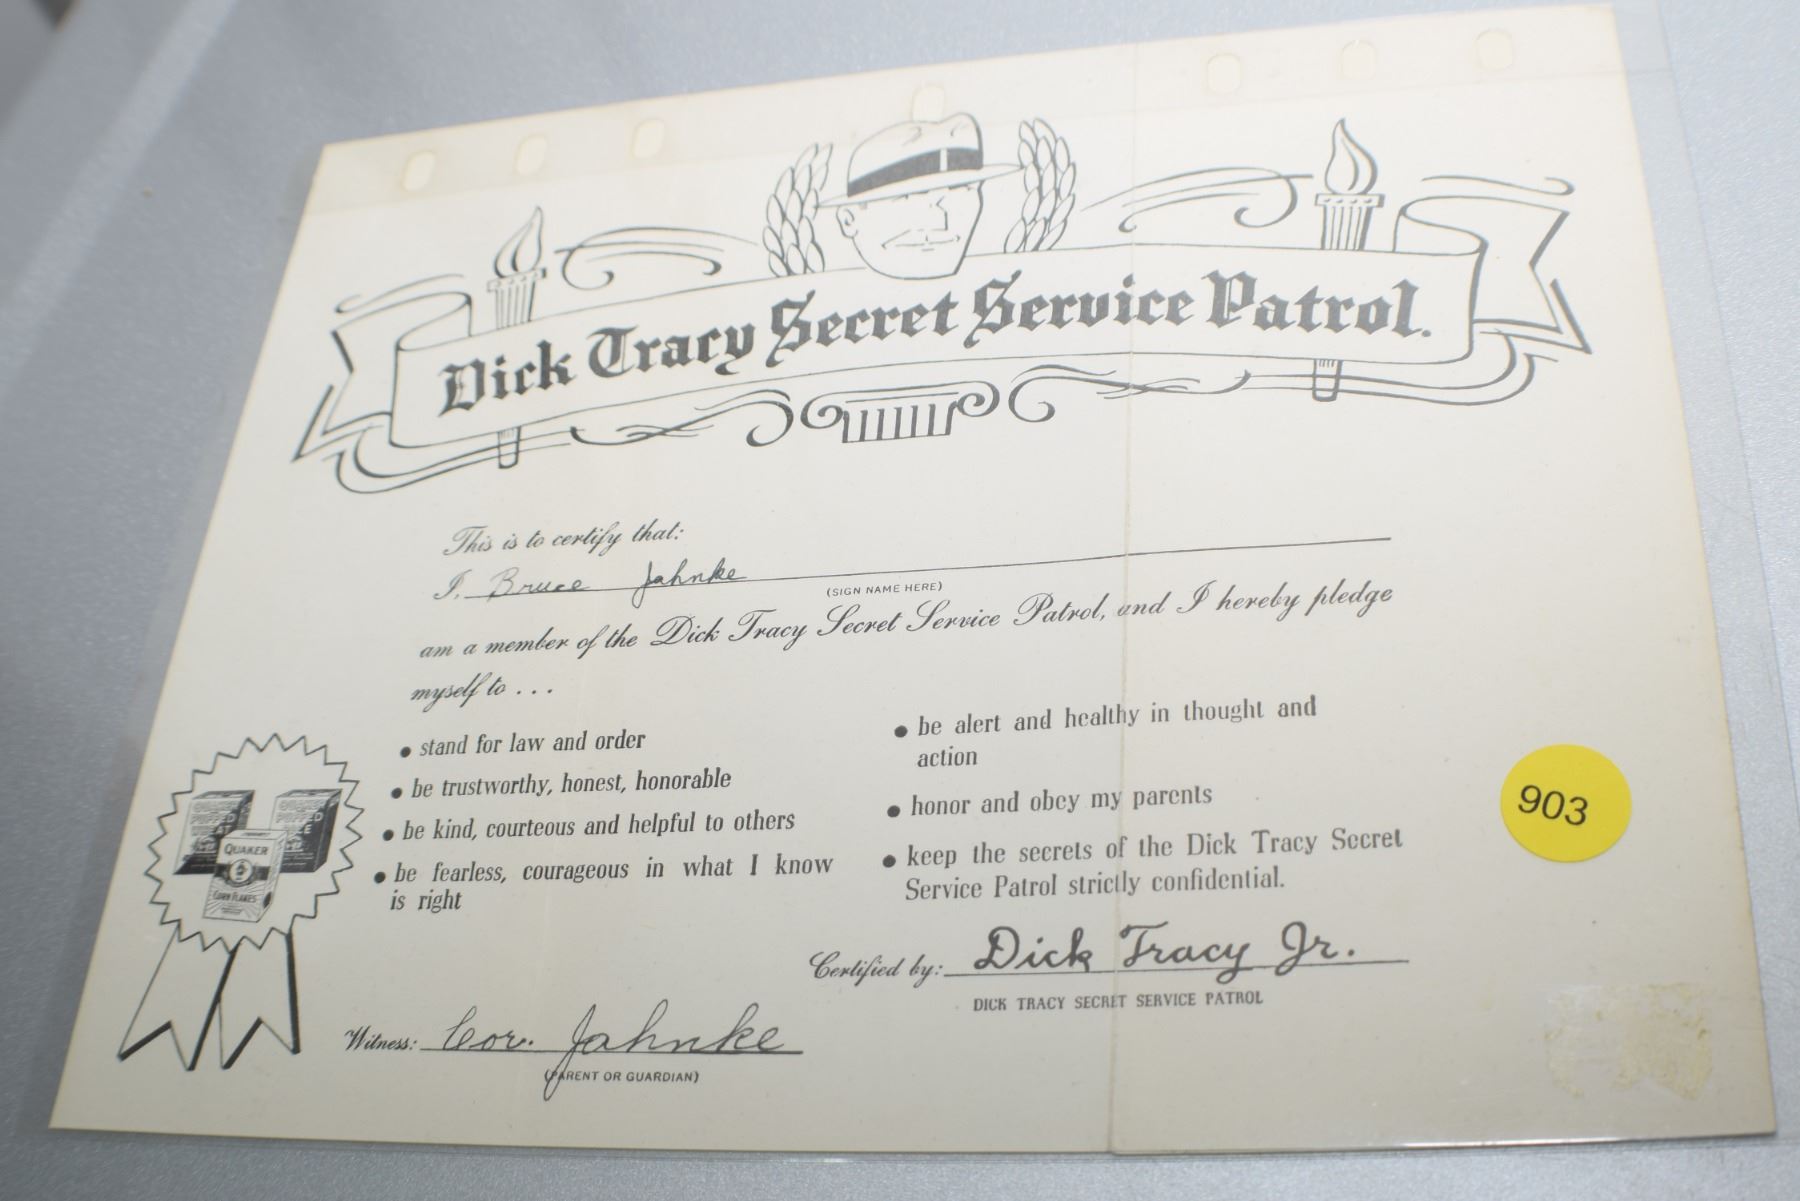 Dick Tracy Secret Service Patrol.
This is to certify that:
I, Bruce Jahnke
(SIGN NAME HERE)
am a member of the Dick Tracy Secret Service Patrol, and I hereby pledge
myself to . . .
• stand for law and order
• be trustworthy, honest, honorable
• be kind, courteous and helpful to others
• be fearless, courageous in what I know
is right
• be alert and healthy in thought and
action
• honor and obey my parents
• keep the secrets of the Dick Tracy Secret
Service Patrol strictly confidential.
903
QUAKER
PUFFED
QUAKER
PUFFED
QUAKER
CORN FLAKES
Certified by: Dick Tracy Jr.
DICK TRACY SECRET SERVICE PATROL
Witness: Cor. Jahnke
(PARENT OR GUARDIAN)